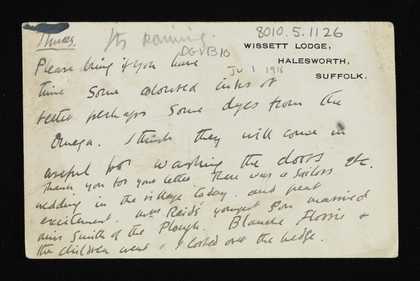 8010.5.1126
Thurs. Its raining.
DGVB10
WISSETT LODGE,
HALESWORTH,
SUFFOLK.
JU 1 1916
Please bring if you have
time some coloured inks or
better perhaps some dyes from the
Omega. I think they will come in
useful for washing the doors etc.
Thank you for your letter. There was a sailors
wedding in the village today. and great
excitement. Mrs Reids youngest son married
miss Smith of the Plough. Blanche Flossie &
the children went & looked over the hedge.